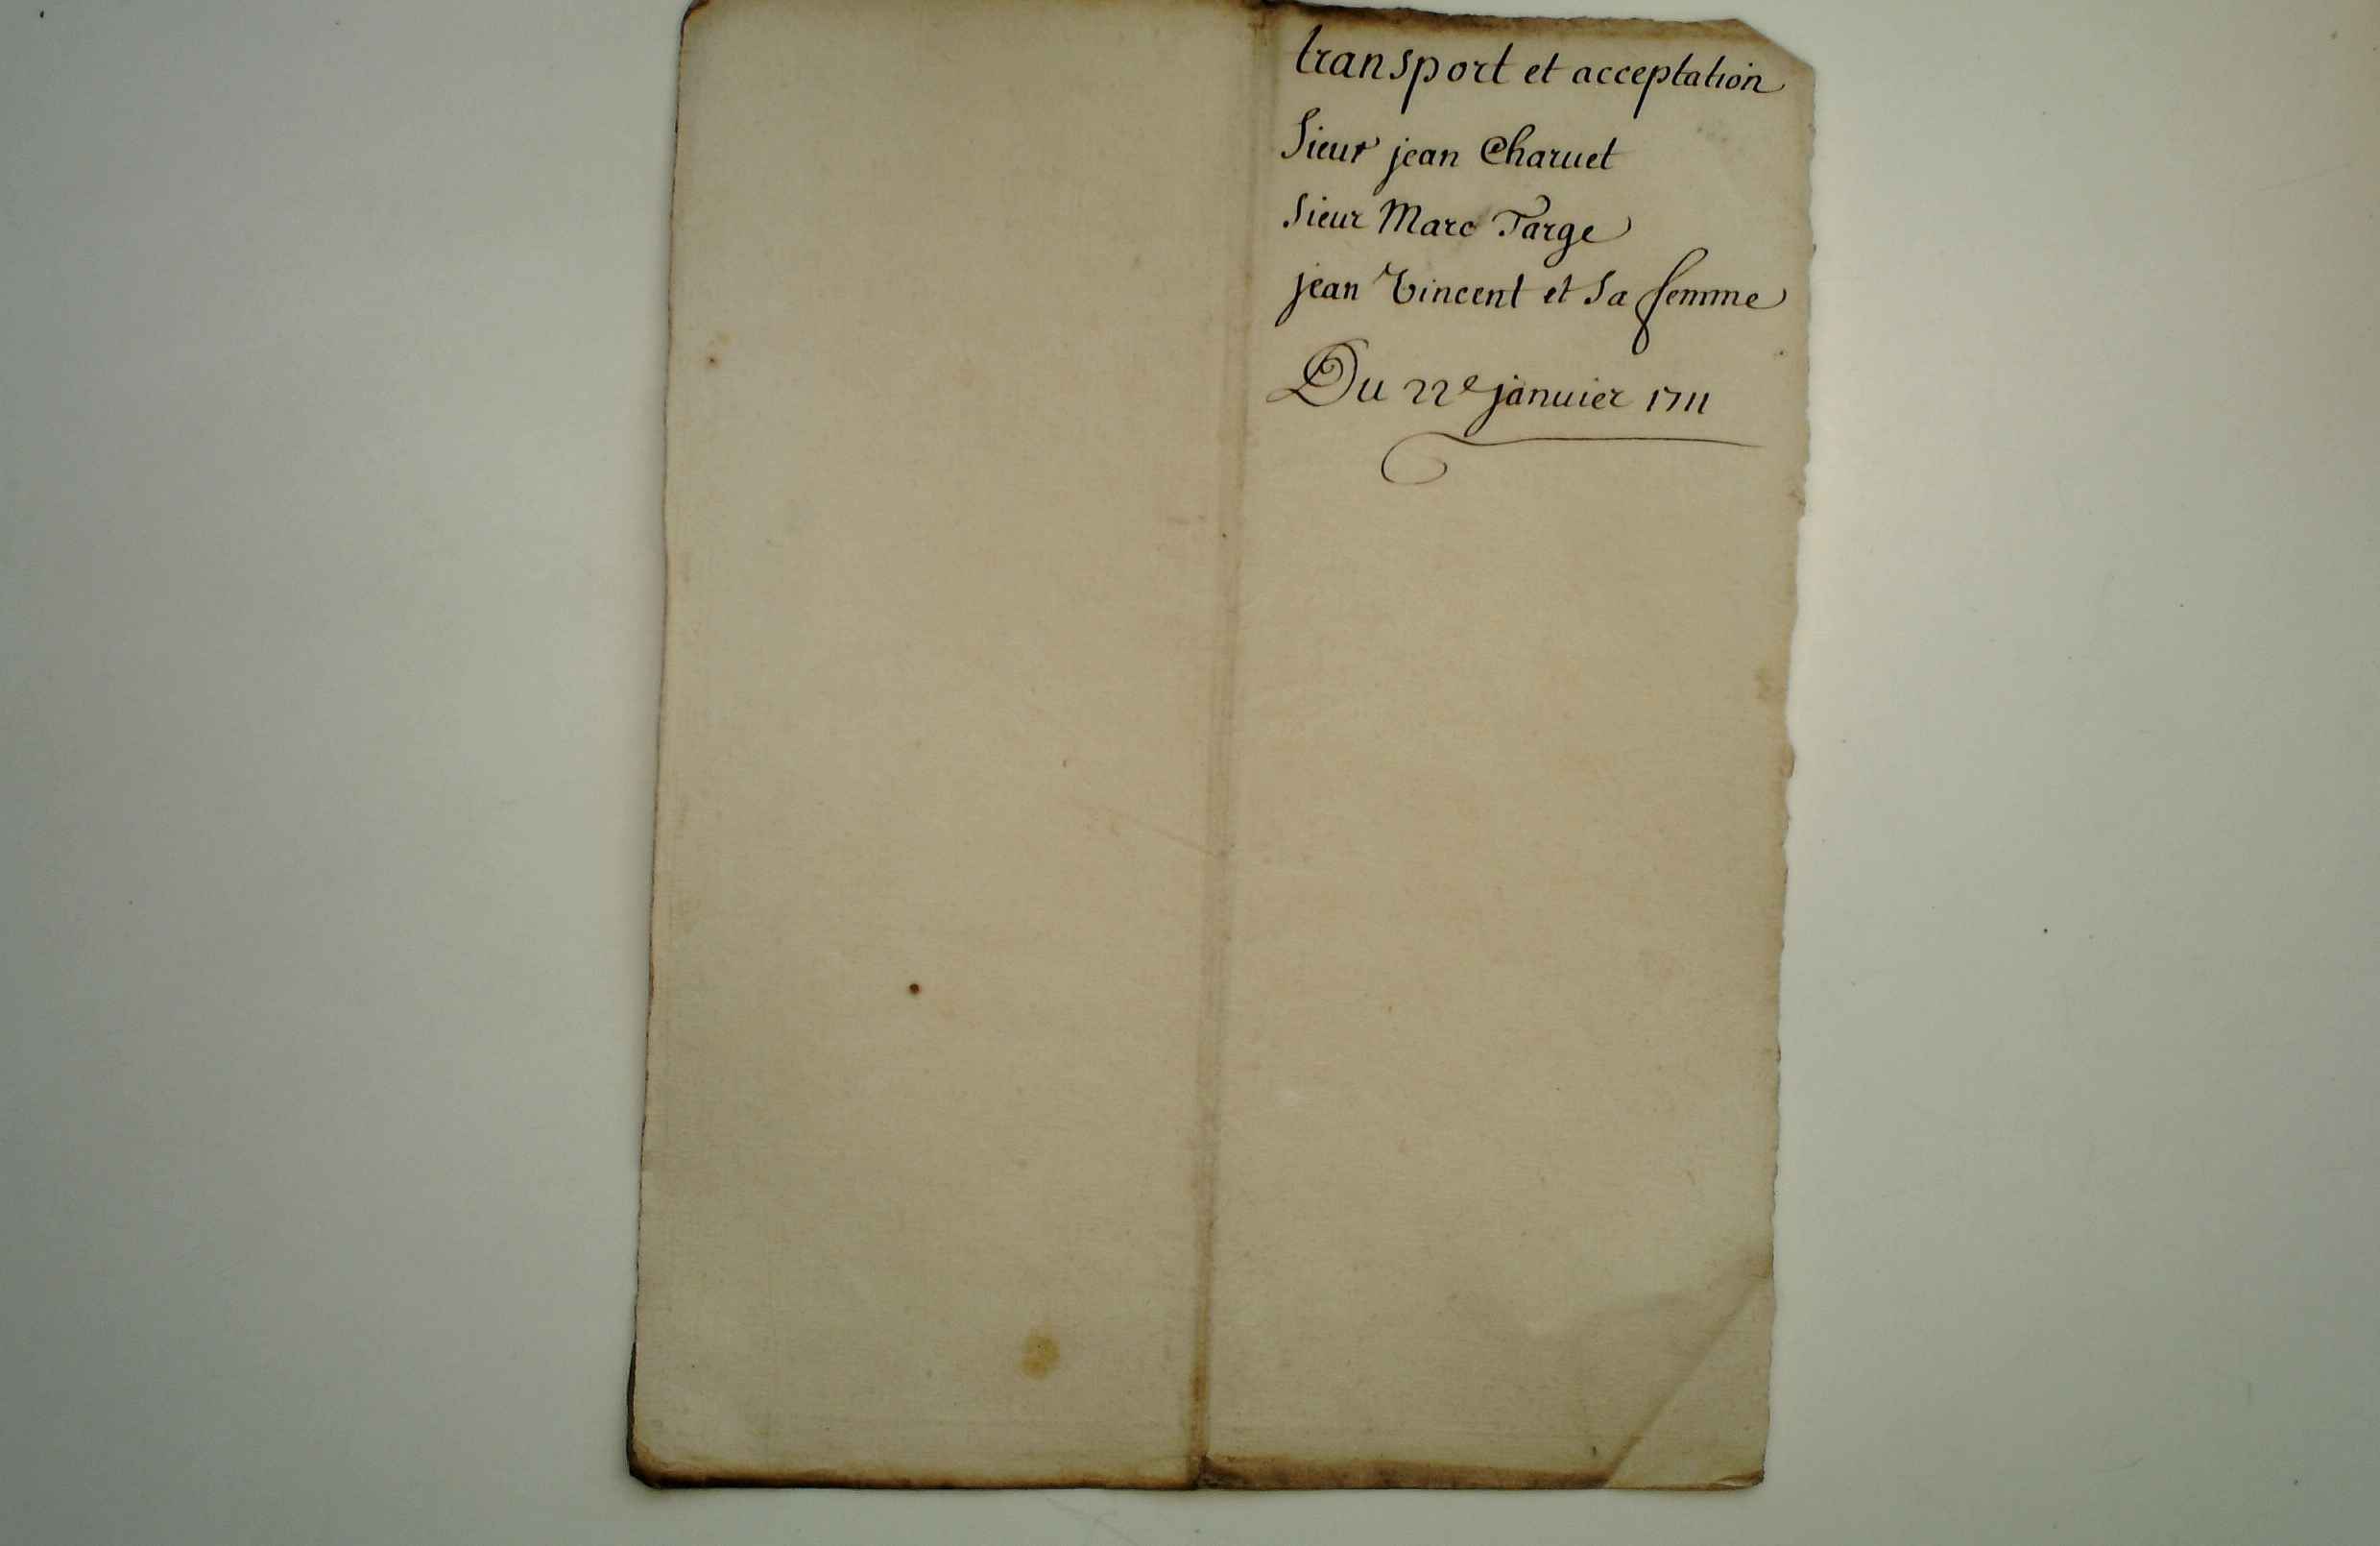 transport et acceptation
Sieur jean Charuet
Sieur Marc Targe
jean Vincent et Sa femme
Du 22e januier 1711